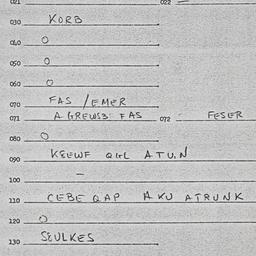 021 022
030 KORB
040 O
050 O
060 O
070 FAS / EMER
071 A GREWSB FAS 072 FESER
080 O
090 KEEWF QGL ATUN
100 –
110 CEBE QAP AKU ATRUNK
120 O
130 SEULKES